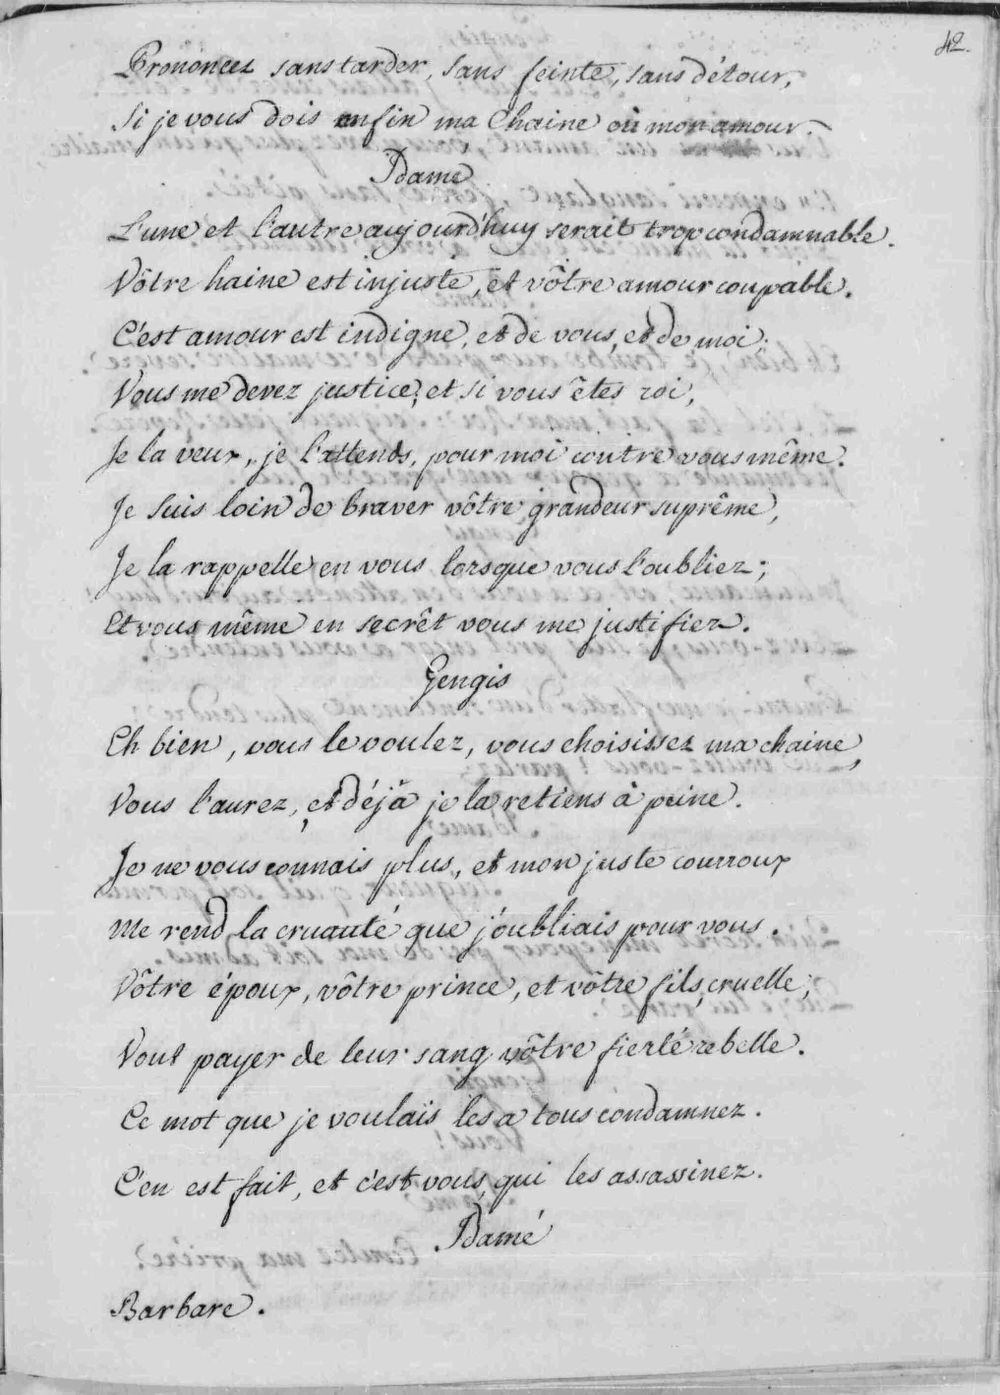 42.
Prononcez sans tarder, sans feinte, sans détour,
Si je vous dois enfin ma chaine ou mon amour.
Idame
L'une et l'autre aujourd'huy serait trop condamnable.
Vôtre haine est injuste, et vôtre amour coupable.
C'est amour est indigne, et de vous, et de moi:
Vous me devez justice; et si vous êtes roi,
Je la veux, je l'attends, pour moi contre vous même.
Je suis loin de braver vôtre grandeur suprême,
Je la rappelle en vous lorsque vous l'oubliez;
Et vous même en secrêt vous me justifiez.
Gengis
Eh bien, vous le voulez, vous choisissez ma chaine,
Vous l'aurez, et déjà je la retiens à peine.
Je ne vous connais plus, et mon juste courroux
Me rend la cruauté que j'oubliais pour vous.
Vôtre époux, vôtre prince, et vôtre fils, cruelle,
Vont payer de leur sang vôtre fierté rebelle.
Ce mot que je voulaïs les a tous condamnez.
C'en est fait, et c'est vous, qui les assassinez.
Idamé
Barbare.